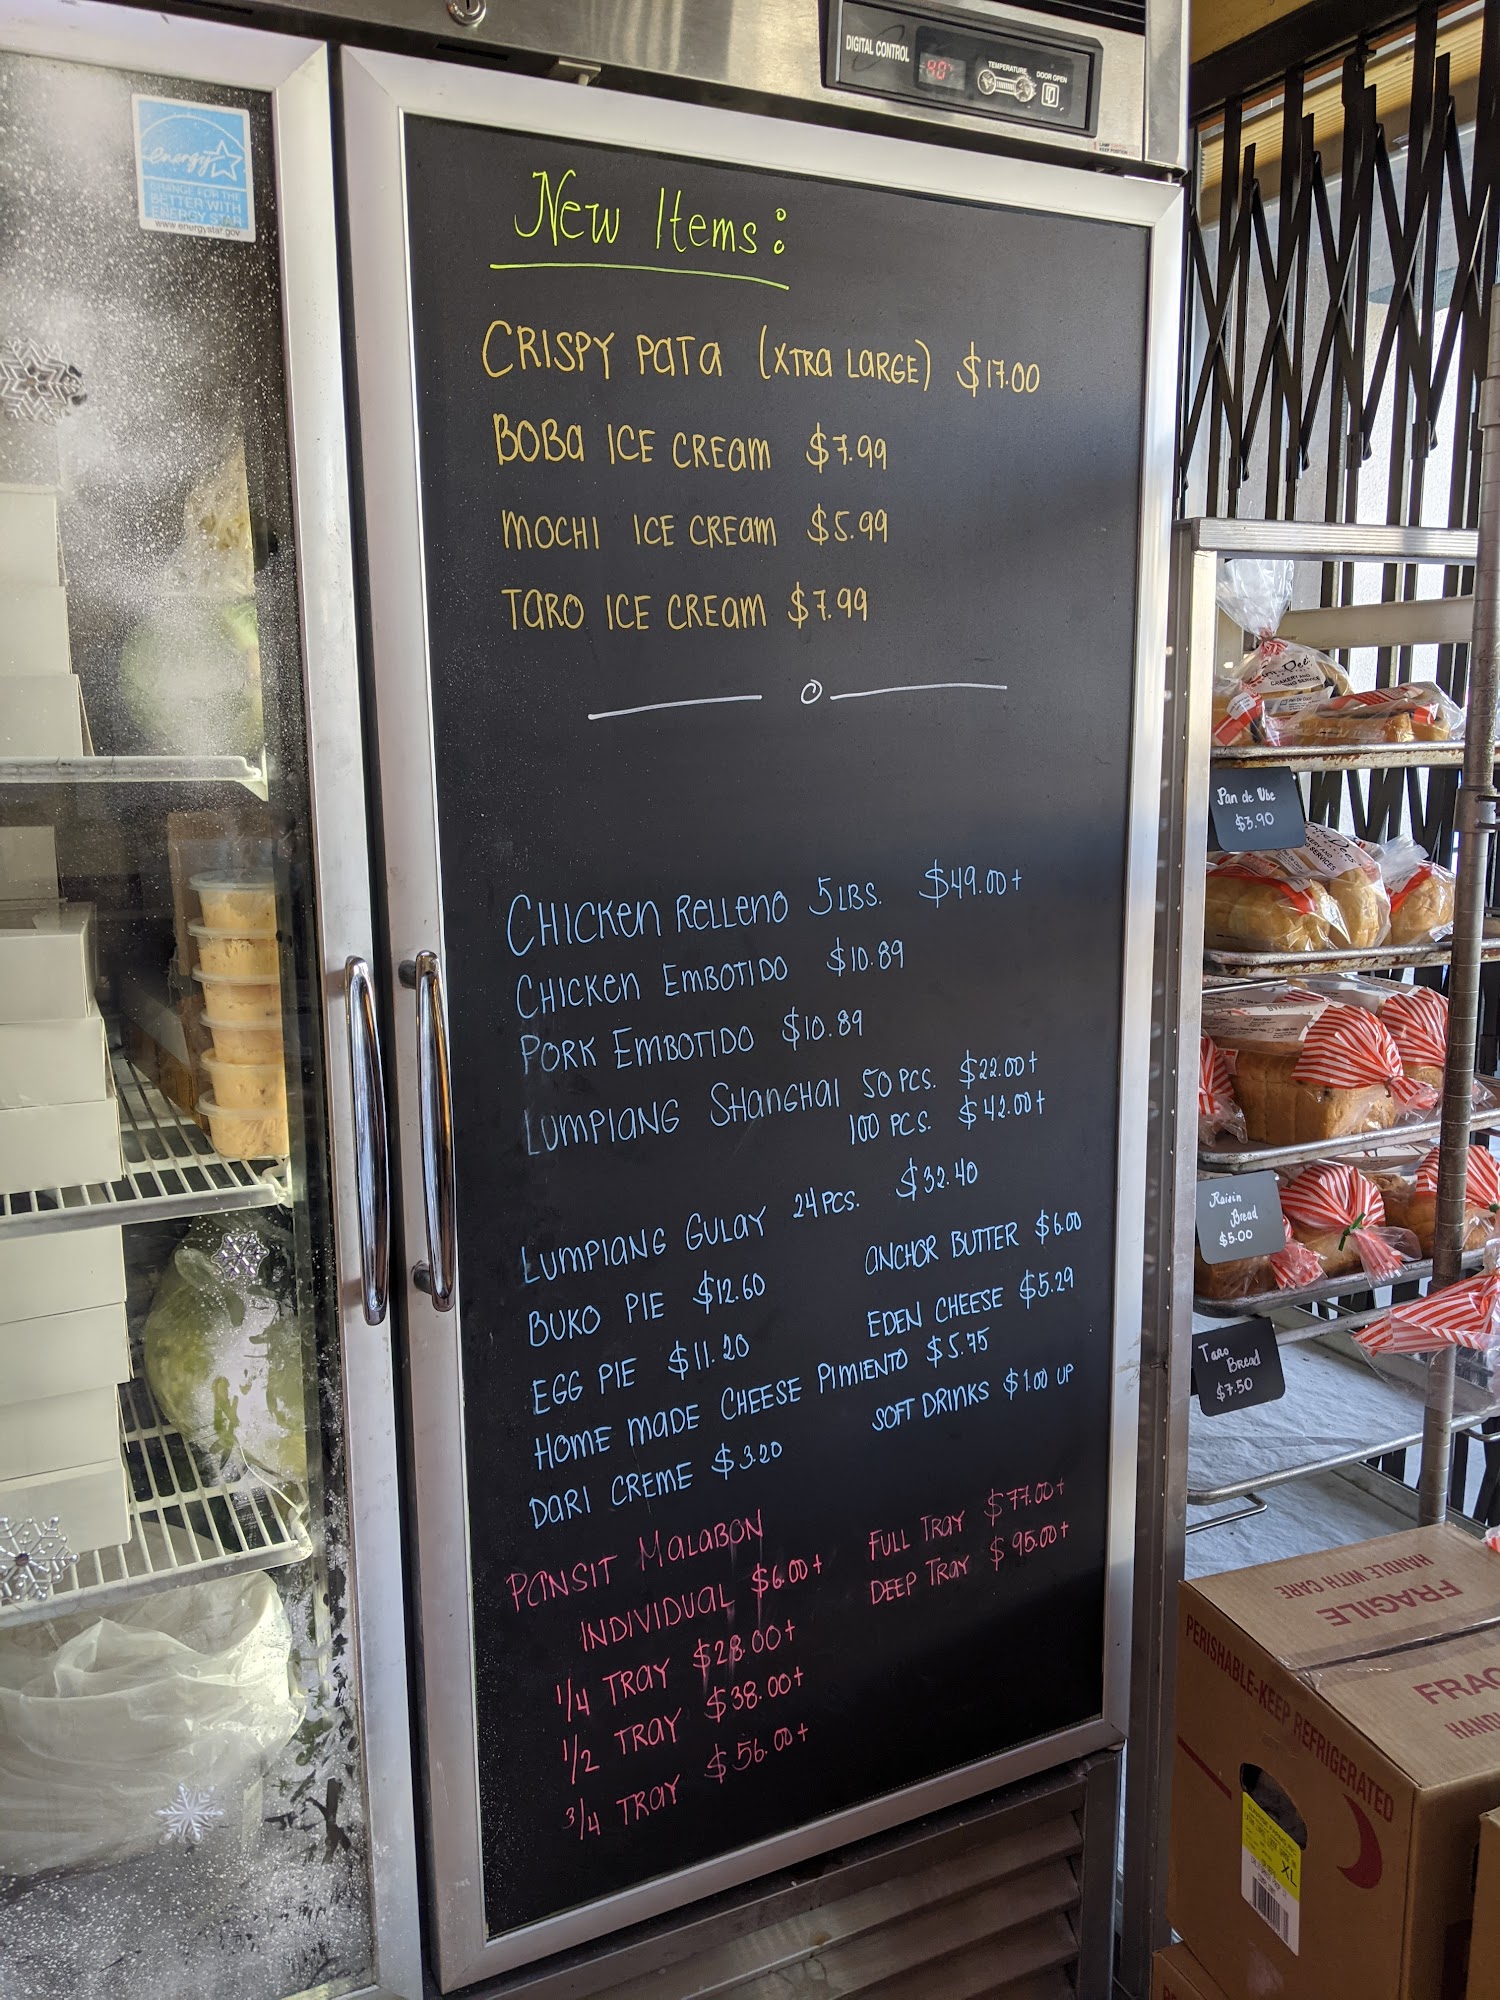 DIGITAL CONTROL
40°
TEMPERATURE
DOOR OPEN
energy
CHANGE FOR THE
BETTER WITH
ENERGY STAR
www.energystar.gov
New Items:
CRISPY PATA (XTRA LARGE) $17.00
BOBA ICE CREAM $7.99
MOCHI ICE CREAM $5.99
TARO ICE CREAM $7.99
CHICKEN RELLENO 5 LBS. $49.00+
CHICKEN EMBOTIDO $10.89
PORK EMBOTIDO $10.89
LUMPIANG SHANGHAI 50 PCS. $22.00+
100 PCS. $42.00+
LUMPIANG GULAY 24 PCS. $32.40
BUKO PIE $12.60
ANCHOR BUTTER $6.00
EGG PIE $11.20
EDEN CHEESE $5.29
HOME MADE CHEESE PIMIENTO $5.75
DARI CREME $3.20
SOFT DRINKS $1.00 UP
PANSIT MALABON
INDIVIDUAL $6.00+
1/4 TRAY $28.00+
1/2 TRAY $38.00+
3/4 TRAY $56.00+
FULL TRAY $77.00+
DEEP TRAY $95.00+
Pan de Ube
$3.90
Raisin
Bread
$5.00
Taro
Bread
$7.50
HANDLE WITH CARE
FRAGILE
PERISHABLE-KEEP REFRIGERATED
XL